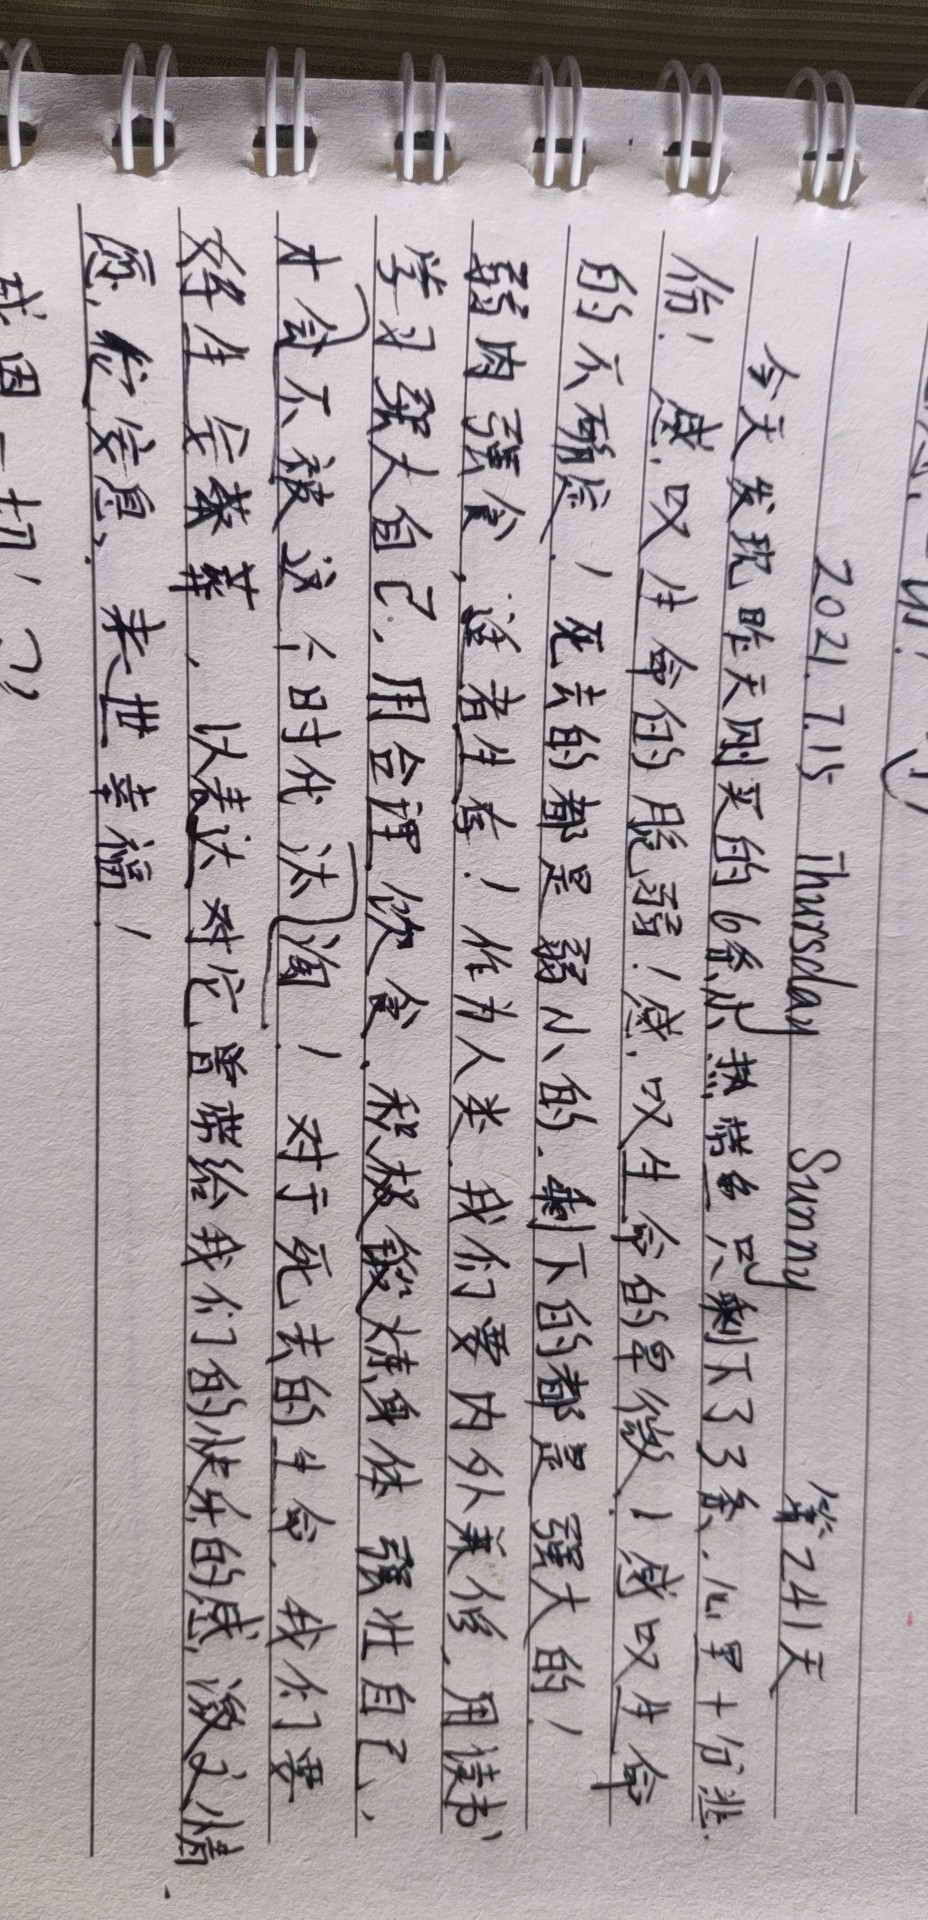 2021.7.15 Thursday Sunny 第241天
今天发现昨天刚买的6条小热带鱼只剩下了3条，心里十分悲
伤！感叹生命的脆弱！感叹生命的卑微！感叹生命
的不堪！死去的都是弱小的，剩下的都是强大的！
弱肉强食，适者生存！作为人类，我们要内外兼修，用读书
学习强大自己，用合理饮食，积极锻炼身体强壮自己，
才会不被这个时代淘汰！对于死去的生命，我们要
好生安葬，以表达对它曾带给我们的快乐的感激之情
愿你安息，来世幸福！
感因一切！